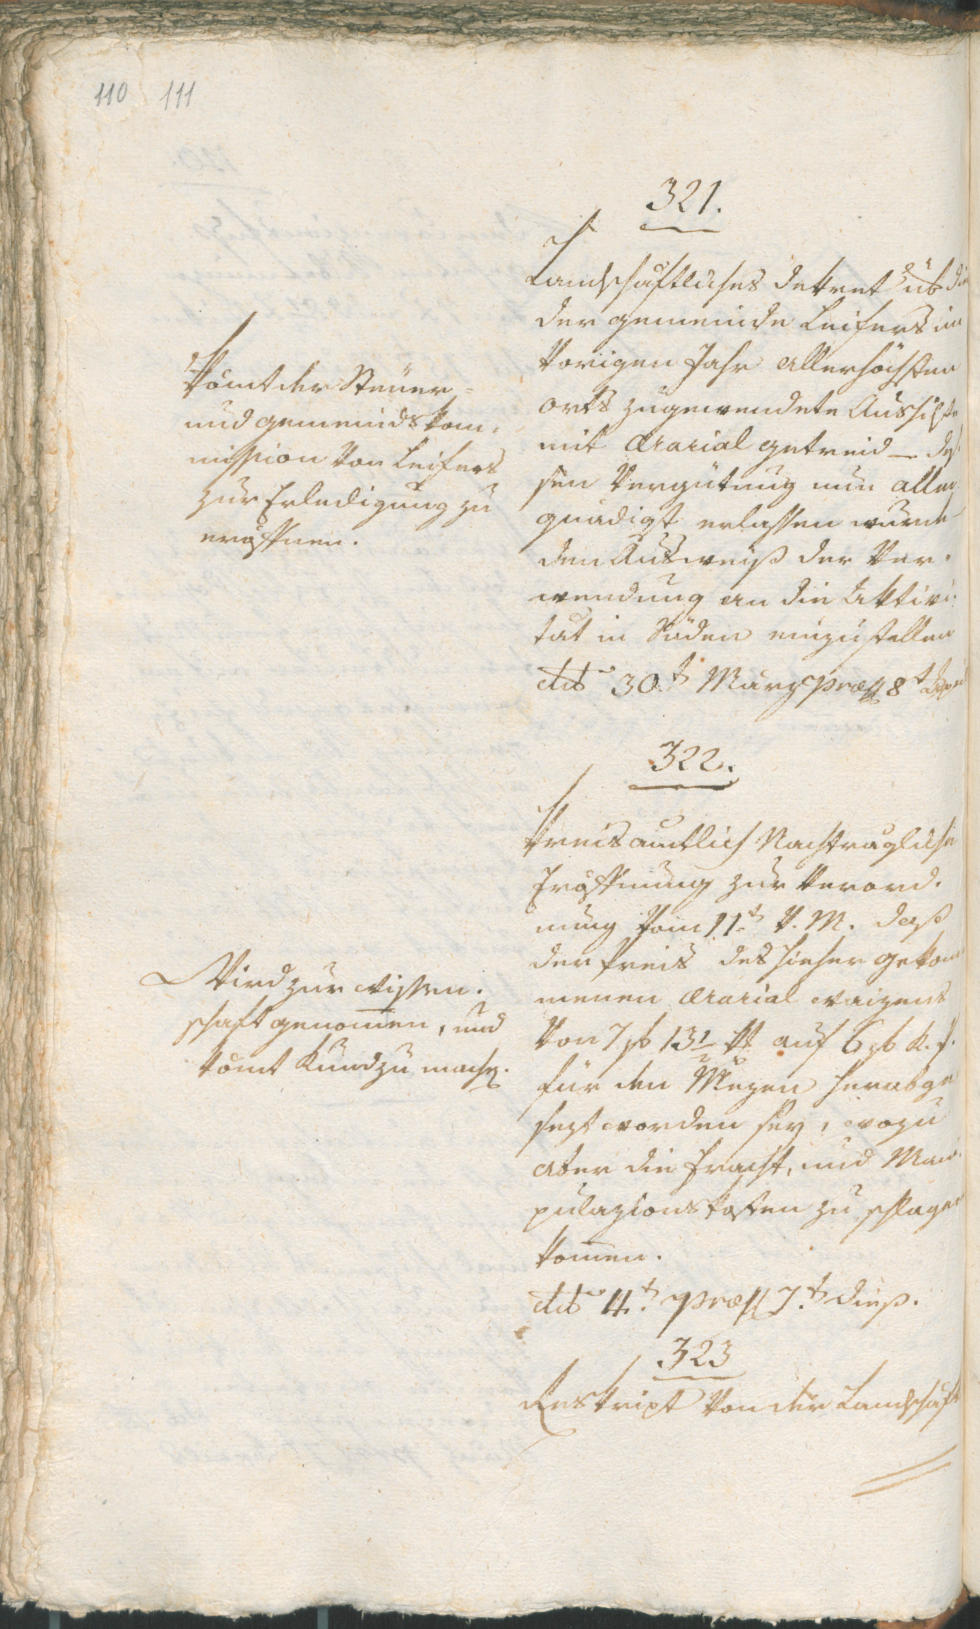 110 111
321.
Landschaftliches Dekret über die
der Gemeinde Leifers im
Vorigen Jahr allerhöchsten
orts zugewendete Aushilfe
mit Ärarial getreid – des
sen Vergütung nun aller
gnädigst erlassen wurde
den Ausweiß der Ver-
wendung an die Aktivi-
tät in Bozen einzustellen
ddto 30.t März Præs. 8t April
Kömt der Steuer-
und gemeindskom-
mission von Leifers
zur Erledigung zu
eröffnen.
322.
Kreisamtlich Nachträgliche
Eröffnung zur Verord-
nung vom 11t V. M. daß
der Preis des hieher gekom
menen Ärarial waizens
von 7 f 13½ xr auf 6 f
für den Mezen herabge
sezt worden sey, wozu
aber die Fracht, und Mani
pulazionskosten zu schlagen
kommen.
ddto 4.t Præs. 7.t dieß.
Wird zur wissen-
schaft genommen, und
kömt Kund zu machen.
323
Reskript von der Landschaft